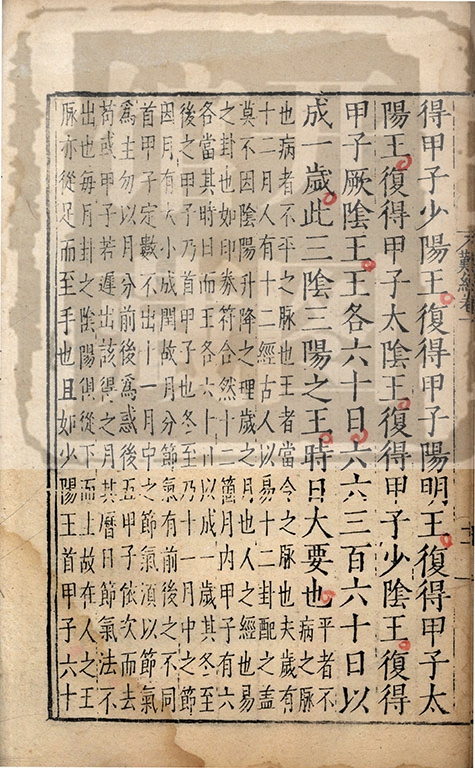 得甲子少陽王復得甲子陽明王復得甲子太
陽王復得甲子太陰王復得甲子少陰王復得
甲子厥陰王王各六十日六六三百六十日以
成一歲此三陰三陽之王時日大要也
平者不
病之脉
也病者不平之脉也王者當令之脉也夫歲有
十二月人有十二經古人以易十二卦配之盖
莫不因陰陽升降之理歲之月也人之經也易
之卦也如印券符合然十二箇月內甲子有六
各當其時日而王各六十日以成一歲其冬至
後之甲子乃首甲子也冬至乃十一月中之節
因月有大小成閏故月分節氣有前後之不同
首甲子定數不出十一月中之節氣湏以節氣
為主勿以月分前後為惑後五甲子依次而去
苟或甲子若遲出該得之月其曆日節氣法不
出也每月卦之陰陽俱從下而上故在人之王
脉亦從足而至手也且如少陽王首甲子六十